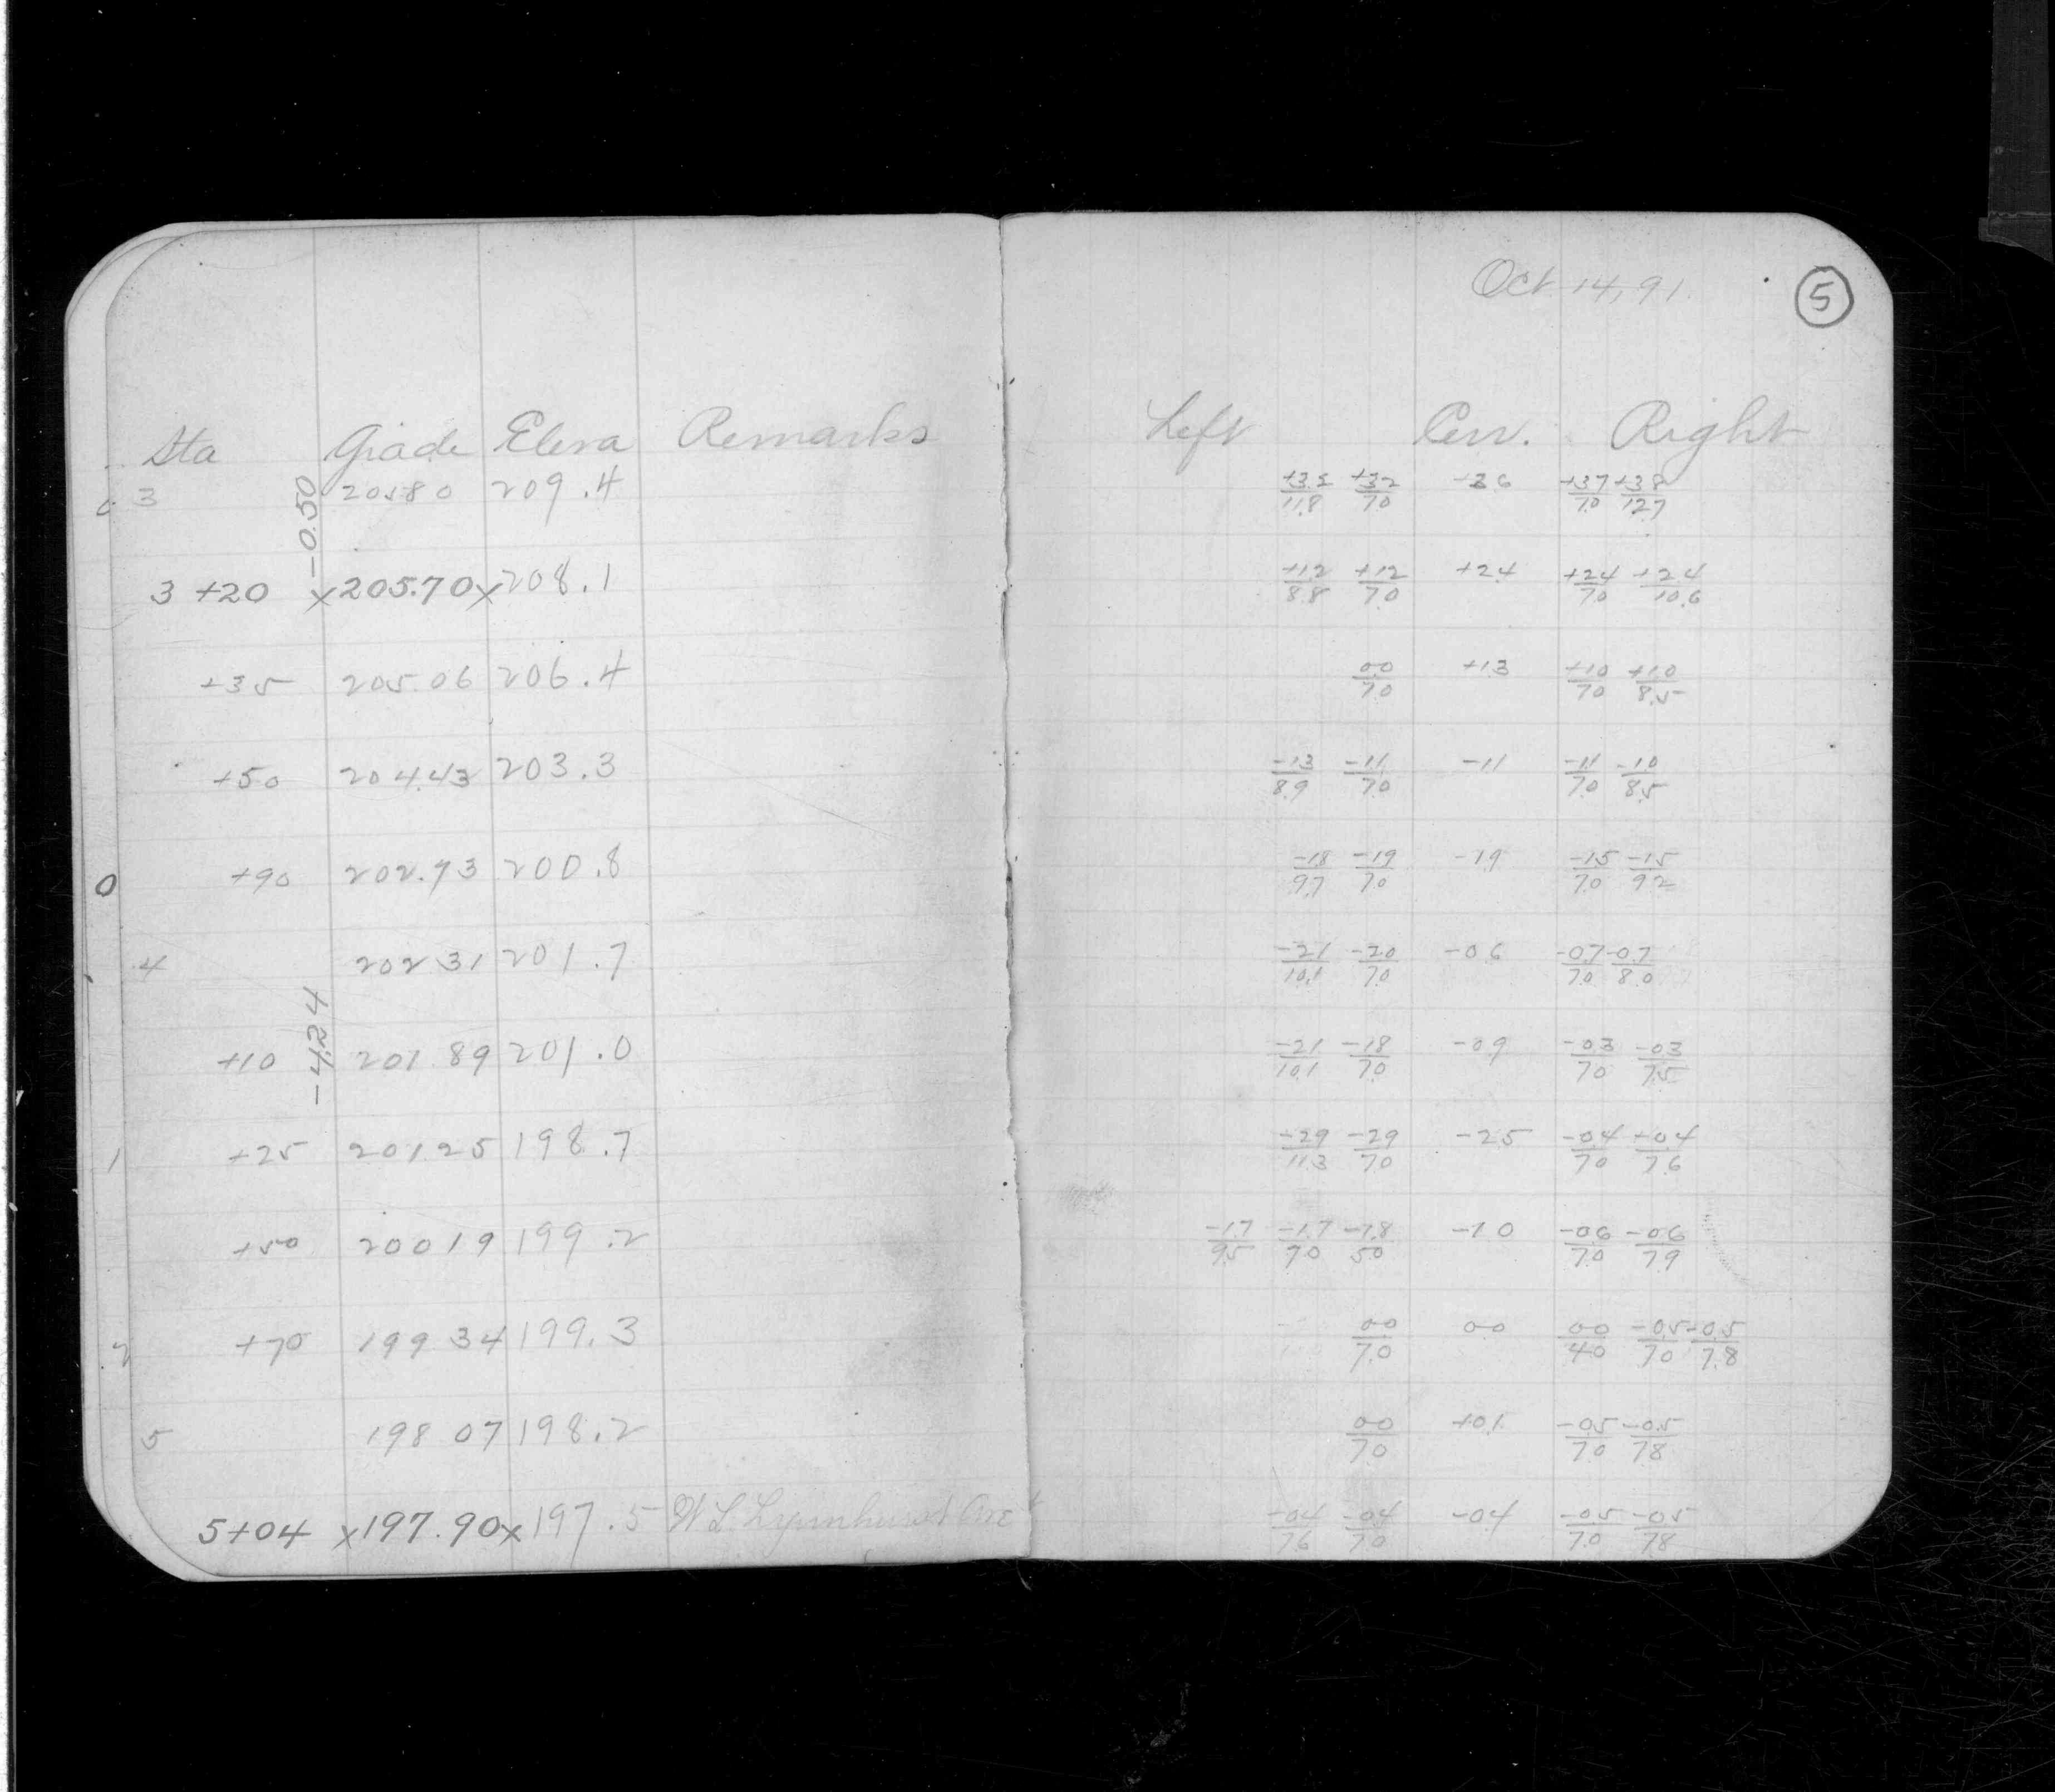 Oct 14, 91 5
Sta Grade Eleva Remarks Left Cen. Right
3 205.80 209.4 +3.2/11.8 +3.2/7.0 +3.6 +3.7/7.0 +3.8/12.7
-0.50
3 +20 x205.70x 208.1 +1.2/8.8 +1.2/7.0 +2.4 +2.4/7.0 +2.4/10.6
+35 205.06 206.4 0.0/7.0 +1.3 +1.0/7.0 +1.0/8.5
+50 204.43 203.3 -1.3/8.9 -1.1/7.0 -1.1 -1.1/7.0 -1.0/8.5
0 +90 202.73 200.8 -1.8/9.7 -1.9/7.0 -1.9 -1.5/7.0 -1.5/9.2
4 202 31 201.7 -2.1/10.1 -2.0/7.0 -0.6 -0.7/7.0 -0.7/8.0
-4.24
+10 201.89 201.0 -2.1/10.1 -1.8/7.0 -0.9 -0.3/7.0 -0.3/7.5
1 +25 201.25 198.7 -2.9/11.3 -2.9/7.0 -2.5 -0.4/7.0 +0.4/7.6
+50 200 19 199.2 -1.7/9.5 -1.7/7.0 -1.8/5.0 -1.0 -0.6/7.0 -0.6/7.9
2 +70 199 34 199.3 0.0/7.0 0.0 0.0/4.0 -0.5/7.0 -0.5/7.8
5 198 07 198.2 0.0/7.0 +0.1 -0.5/7.0 -0.5/7.8
5+04 x197.90x 197.5 W L Lynnhurst Ave -0.4/7.6 -0.4/7.0 -0.4 -0.5/7.0 -0.5/7.8